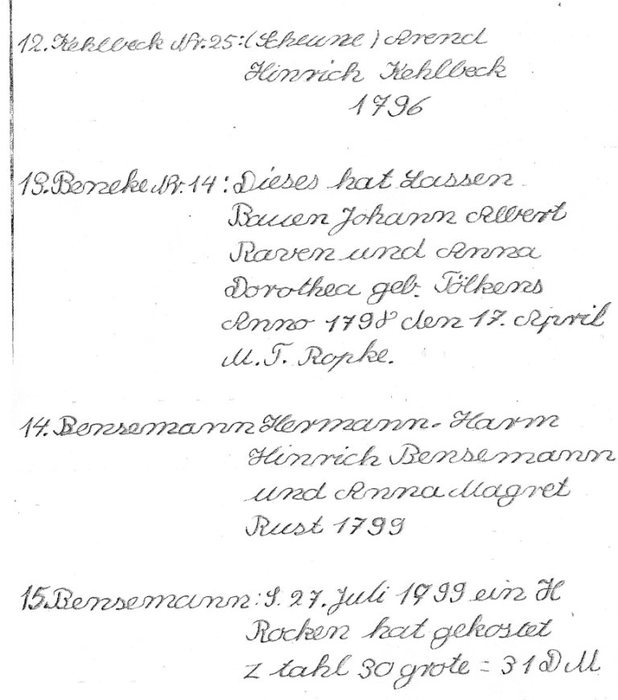 12. Kehlbeck Nr. 25: (Scheune) Arend
Hinrich Kehlbeck
1796
13. Beneke Nr. 14: Dieses hat Lassen
Bauen Johann Albert
Raven und Anna
Dorothea geb. Tölkens
Anno 1798 den 17. April
M. T. Ropke.
14. Bensemann Hermann. Harm
Hinrich Bensemann
und Anna Magret
Rust 1799
15. Bensemann: S. 27. Juli 1799 ein H
Rocken hat gekostet
z tahl 30 grote = 31 DM